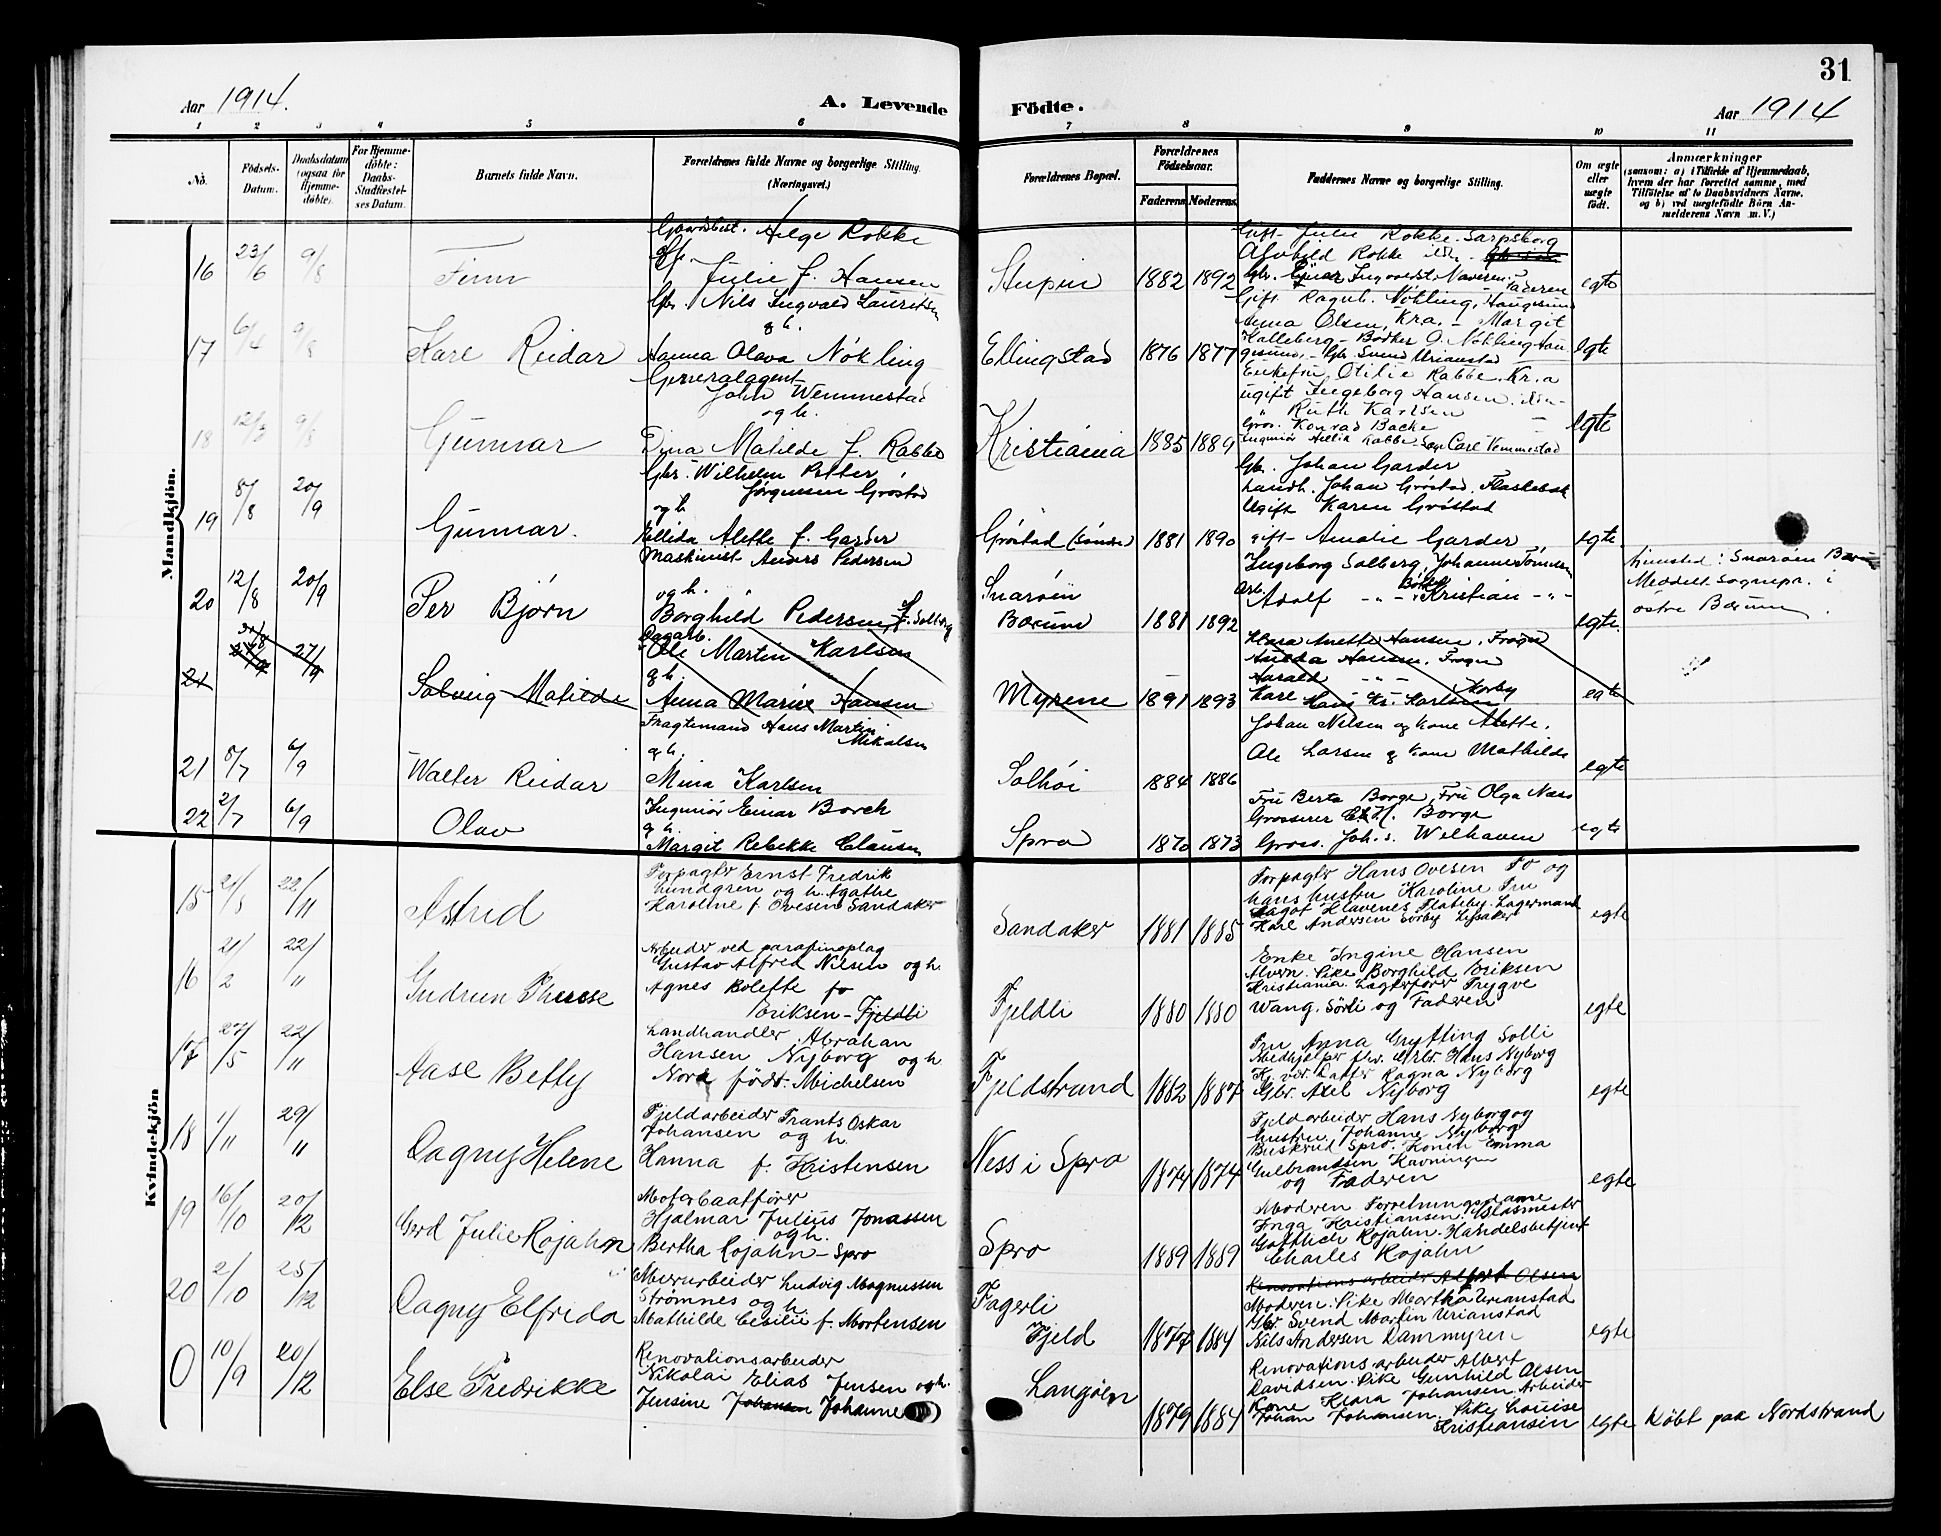 31
Aar 1914.
A. Levende
Födte.
Aar 1914
1 2 3 4 5 6 7 8 9 10 11
No.
Födsels-Datum.
Daabsdatum (ogsaa for Hjemme-döbte).
For Hjemme-döbte: Daabs-Stadfæstel-ses Datum.
Barnets fulde Navn.
Forældrenes fulde Navne og borgerlige Stilling. (Næringsvei.)
Forældrenes Bopæl.
Forældrenes Födselsaar.
Faderens Moderens
Faddernes Navne og borgerlige Stilling.
Om ægte eller uægte födt.
Anmærkninger
(saasom: a) i Tilfælde af Hjemmedaab,
hvem der har forrettet samme, med
Tilföielse af to Daabsvidners Navne,
og b) ved uægtefödte Börn An-
melderens Navn m. V.)
Mandkjön.
16 23/6 9/8 Finn
Helge Rokke
Julie f. Hansen
Stupin 1882 1892
Gift Julie Rokke Sarpsborg
Rokke
Faderen
egte
17 6/4 9/8 Karl Reidar
Gbr. Nils Ingvald Lauritsen
g h.
Hanna Olava Nökling
Ellingstad 1876 1877
Gift. Ragnh. Nökling, Haugesund
Anna Olsen, Kra. - Margit
Kalleberg - Bödker O. Nökling Hau
gesund, - Gbr. Svend Urianstad
egte
18 12/3 9/8 Gunnar
Generalagent
John Wemmestad
og h.
Dina Matilde f. Rabbe
Kristiania 1885 1889
Enkefru Otilie Rabbe. Kr.a
ugift Ingeborg Hansen
" Ruth Karlsen
Gros. Konrad Backe
Carl Vemmestad
egte
19 8/8 20/9 Gunnar.
Gbr. Wilhelm Petter
Jörgensen Gröstad
og h.
Ellida Alette f. Garder
Gröstad (söndre) 1881 1890
Gbr. Johan Garder
Landh. Johan Gröstad. Flaskebek
Ugift Karen Gröstad
gift- Amalie Garder
egte.
20 12/8 20/9 Per Björn
Maskinist Anders Pedersen
og h.
Borghild Pedersen f. Solberg
Snaröen
Bærum 1881 1892
Ingeborg Solberg, Johanne Tönnesen
Arb. Adolf -"- Kristian -"-
egte.
Snaröen Bærum
Meddelt Sognepr. i
östre Bærum.
21 27/9 Solveig Matilde
Dagarb.
Ole Martin Karlsen
g h.
Anna Marie Hansen
Myrene 1891 1893
Klara Anette Hansen, Frogn
Hansen, Frogn
Harald -"-
Karl Hans Kr. Karlsen Korby
egte
21 8/7 6/9 Walter Reidar
Fragtemand Hans Martin
Mikalsen
g h.
Mina Karlsen
Solhöi 1884 1886
Johan Nilsen og kone Alette.
Ole Larsen g kone Mathilde
egte
22 2/7 6/9 Olav
Ingeniör Einar Borch
g h.
Margit Rebekke Clausen
Spro 1870 1873
Fru Berta Borge, Fru Olga Næss
Grosserer Chr. H. Borge
Gross. Joh. s. Welhaven
egte
Kvindekjön
15 21/5 22/11 Astrid
Forpagter Ernst Fredrik
Lundgren og h. Agathe
Karoline f. Ovesen Sandaker
Sandaker 1881 1885
Forpagter Hans Ovesen Fo og
hans hustru Karoline Fru
Dagot Flateby. Lagermand
Karl Andersen Sörby Lysaker
egte
16 21/2 22/11 Gudrun Therese
Arbeider ved parafinoplag
Gustav Alfred Nilsen og h.
Agnes Bolette fo
Eriksen - Fjeldli
Fjeldli 1880 1880
Enke Ingine Hansen
Alvern. Pike Borghild Eriksen
Kristiania. Lagerförer Trygve
Wang. Sörli og Faderen
egte
17 27/5 22/11 Aase Betty
Landhandler Abrahan
Hansen Nyborg og h
Nora födt. Michelsen
Fjeldstrand 1882 1887
Fru Anna Gryfting Solli
Medhjelper Hans Nyborg
Datter Ragna Nyborg
Gbr. Axel Nyborg
egte
18 1/11 29/11 Dagny Helene
Fjeldarbeider Frants Oskar
Johansen og h.
Hanna f. Kristensen
Ness i Spro 1874 1874
Fjeldarbeider Hans Nyborg og
hustru Johanne Nyborg
Buskrud Spro. Konen Emma
Gulbrandsen Kavningen
og Faderen
egte
19 16/10 20/12 Gerd Julie Rojahn
Motorbaatförer
Hjalmar Julius Jonassen
og h.
Bertha Rojahn - Spro
Spro 1889 1889
Moderen Forretningsdame
Inga Kristiansen. Glasmester
Gottlieb Rojahn. Handelsbetjent
Charles Rojahn
20 2/10 25/12 Dagny Elfrida
Murarbeider Ludvig Magnussen
Strömnes og h.
Mathilde Cecilie f. Mortensen
Fagerli
Fjeld 1877 1884
Renovationsarbeider Albert Olsen
Moderen. Pike Martha Urianstad
Gbr. Svend Martin Urianstad
Nils Andersen Dammyren
egte
0 10/9 20/12 Else Fredrikke
Renovationsarbeider
Nikolai Elias Jensen og h.
Jensine Johansen Johanne
Langöen 1879 1884
Renovationsarbeider Albert
Davidsen. Pike Gunhild Olsen
Kone Klara Johansen. Arbeider
Johan Johansen. Pike Louise
Kristiansen
egte Döbt paa Nordstrand